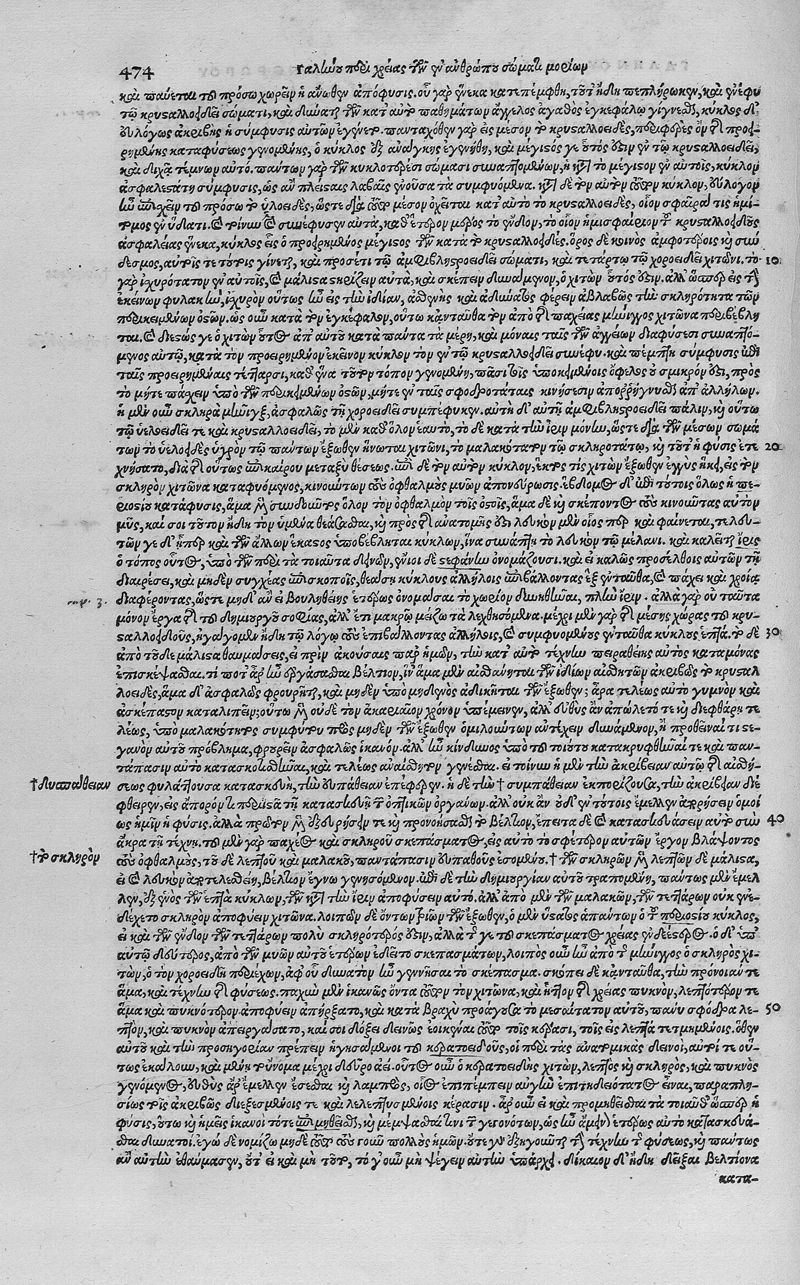 474 Γαληνοῦ περὶ χρείας τῶν ἐν ἀνθρώπου σώματι μορίων
καὶ παύεται τοῦ πρόσω χωρεῖν ἡ ἄνωθεν ἀπόφυσις. οὗ γὰρ ἕνεκα κατεπέμφθη, τοῦτ' ἤδη πεπλήρωκεν, καὶ
τῷ κρυσταλλοειδεῖ σώματι, καὶ τῶν κατ' αὐτὸ παθημάτων ἄγγελος ἀγαθὸς ἐγκεφάλῳ γίγνεσθαι, κύκλος δ'
εὐλόγως ἀκριβὴς ἡ σύμφυσις αὐτῶν ἐγένετο. πανταχόθεν γὰρ εἰς μέσον τὸ κρυσταλλοειδὲς, περιφερὲς ὂν τῆς προει-
ρημένης καταφύσεως γενομένης, ὁ κύκλος ἐξ ἀνάγκης ἐγεννήθη, καὶ μέγιστός γε οὗτός ἐστιν ἐν τῷ κρυσταλλοειδεῖ,
καὶ δίχα τέμνων αὐτό. πάντων γὰρ τῶν κυκλοτερέσι σώμασι συναπτομένων, ἡ κατὰ τὸ μέγιστον ἐν αὐτοῖς, κύκλον
ἀσφαλεστάτη σύμφυσις, ὡς ἂν πλείσταις λαβαῖς ἑνοῦσα τὰ συμφυόμενα. κατὰ δὲ τὸν αὐτὸν τοῦτον κύκλον, εὔλογον
ἦν τοῦ πρόσω τὸ ὑαλοειδὲς, ὥστε διὰ τοῦτον μέσον ὀχεῖται κατ' αὐτὸ τὸ κρυσταλλοειδὲς, οἷον σφαῖρά τις ἡμί-
τομος ἐν ὕδατι. καὶ τοίνυν καὶ συνέφυσεν αὐτὰ, καθ' ἕτερον μέρος τὸ ἔνδον, τὸ οἷον ἡμισφαίριον τοῦ κρυσταλλοειδοῦς
ἀσφαλείας ἕνεκα, κύκλος εἷς ὁ προειρημένος μέγιστος τῶν κατὰ τὸ κρυσταλλοειδὲς, ὅρος δὲ κοινὸς ἀμφοτέροις καὶ σύν-
δεσμος, αὐτοῖς τε τούτοις γίνεται, καὶ προσέτι τῷ ἀμφιβληστροειδεῖ σώματι, καὶ τετάρτῳ τῷ χοροειδεῖ χιτῶνι. τὸ 10
γὰρ ἰσχυρότατον ἐν αὐτοῖς, καὶ μάλιστα στηρίζειν αὐτὰ, καὶ σκέπειν δυνάμενον, ὁ χιτὼν οὗτός ἐστιν. ἀλλ' ὥσπερ εἰς τὴν
ἐκείνων φυλακὴν, ἰσχυρὸν οὕτως ἦν εἰς τὴν ἰδίαν, ἀσθενὴς καὶ ἀδύνατος φέρειν ἀβλαβῶς τὴν σκληρότητα τῶν
περικειμένων ὀστῶν, ὡς οὖν κατὰ τὸν ἐγκέφαλον, οὕτω κἀνταῦθα τὸν ἀπὸ τῆς παχείας μήνιγγος χιτῶνα περιβέβλη-
ται. καὶ δέδεταί γε ὁ χιτὼν οὗτος ἀπ' αὐτοῦ κατὰ πάντα τὰ μέρη, καὶ μόναις ταῖς τῶν ἀγγείων διαφύσεσι συναπτό-
μενος αὐτῷ, κατὰ τὸν προειρημένον ἐκεῖνον κύκλον τὸν ἐν τῷ κρυσταλλοειδεῖ συνέφυ. καὶ πέμπτη σύμφυσις ἐπὶ
ταῖς προειρημέναις τέτταρσι, καθ' ἕνα τοῦτον τόπον γενομένη, πᾶσι τοῖς ὑποκειμένοις ὄφελος οὐ σμικρόν ἐστι, πρὸς
τὸ μήτε πάσχειν ὑπὸ τῶν περικειμένων ὀστῶν, μήτε ἐν ταῖς σφοδροτάταις κινήσεσιν ἀποῤῥήγνυσθαι ἀπ' ἀλλήλων.
ἡ μὲν οὖν σκληρὰ μήνιγξ, ἀσφαλῶς τῇ χοροειδεῖ συμπέφυκεν. αὕτη δ' αὖ τῇ ἀμφιβληστροειδεῖ πάλιν, καὶ οὕτω
τῷ ὑελοειδεῖ τε καὶ κρυσταλλοειδεῖ, τὸ μὲν καθ' ὅλον ἑαυτὸ, τὸ δὲ κατὰ τὴν ἶριν μόνην, ὥστε διὰ τῶν μέσων σωμά-
των τὸ ὑελοειδὲς ὑγρὸν τῷ πάντων ἔξωθεν ἥνωται χιτῶνι, τὸ μαλακώτατον τῷ σκληροτάτῳ, καὶ τοῦτ' ἡ φύσις ἐτε- 20
χνήσατο, διὰ τῆς οὕτως ἐπικαίρου μεταξὺ θέσεως. ἐπὶ δὲ τὸν αὐτὸν κύκλον, ἕκτος τις χιτὼν ἔξωθεν ἐγγὺς ἥκει, εἰς τὸν
σκληρὸν χιτῶνα καταφυόμενος, κινούντων τοὺς ὀφθαλμοὺς μυῶν ἀπονεύρωσις ἕβδομος δ' ἐπὶ τούτοις ὅλως ἡ τοῦ πε-
ριοστίου κατάφυσις, ἅμα μὲν συνδοῦντος ὅλον τὸν ὀφθαλμὸν τοῖς ὀστοῖς, ἅμα δὲ καὶ σκέποντος τοὺς κινοῦντας αὐτὸν
μῦς, καί σοι τοῦτον ἤδη τὸν ὑμένα θεάσασθαι, καὶ πρὸ τῆς ἀνατομῆς ἔστι. λευκὸν μὲν οἷός περ καὶ φαίνεται, τελευ-
τῶν γε δ' ᾗπερ καὶ τῶν ἄλλων ἕκαστος ὑποβέβληται κύκλων, ἵνα συνάπτῃ τὸ λευκὸν τῷ μέλανι. καὶ καλεῖται ἶρις
ὁ τόπος οὗτος, ὑπὸ τῶν περὶ τὰ τοιαῦτα δεινῶν, ἔνιοι δὲ στεφάνην ὀνομάζουσι. καὶ εἰ καλῶς προσέλθοις αὐτῶν τῇ
διαιρέσει, καὶ μηδὲν συγχέας ἐπισκοποῖς, θεάσῃ κύκλους ἀλλήλοις ἐπιβάλλοντας ἓξ ἐνταῦθα, καὶ πάχει καὶ χροίᾳ
διαφέροντας, ὥστε μηδ' ἂν εἰ βουληθείης ἑτέρως ὀνομάσαι τὸ χωρίον δυνηθῆναι, πλὴν ἶριν. ἀλλὰ γὰρ οὐ ταῦτα
μόνον ἔργα τῆς τοῦ δημιουργοῦ σοφίας, ἀλλ' ἔτι μακρῷ μείζω τὰ λεχθησόμενα. μέχρι μὲν γὰρ τῆς μέσης χώρας τοῦ κρυ-
σταλλοειδοῦς, ἠγάγομεν ἤδη τῷ λόγῳ τοὺς ἐπιβάλλοντας ἀλλήλοις, καὶ συμφυομένους ἐνταῦθα κύκλους ἑπτά. τὸ δὲ 30
ἀπὸ τοῦδε μάλιστα θαυμάσεις, εἰ πρὶν ἀκούσαις παρ' ἡμῶν, τὴν κατ' αὐτὸ τέχνην πειραθείης αὐτὸς καταμόνας
ἐπισκέψασθαι. τί ποτ' ἄρ' ἦν ἐργάσασθαι βέλτιον, ἵν' ἅμα μὲν αἰσθάνηται τῶν ἰδίων αἰσθητῶν ἀκριβῶς τὸ κρυσταλ-
λοειδὲς, ἅμα δ' ἀσφαλῶς φρουρῆται, καὶ μηδὲν ὑπὸ μηδενὸς ἀδικῆται τῶν ἔξωθεν; ἆρα τελέως αὐτὸ γυμνὸν καὶ
ἀσκέπαστον καταλιπεῖν; οὕτω μὲν οὐδὲ τὸν ἀκαριαῖον χρόνον ὑπέμεινεν, ἀλλ' εὐθὺς ἂν ἀπώλετό τε καὶ διεφθάρη τε-
λέως, ὑπὸ μαλακότητος συμφύτου πρὸς μηδὲν τῶν ἔξωθεν ὁμιλούντων ἀντέχειν δυνάμενον, ἢ προθεῖναί τι στε-
γανὸν αὐτοῦ πρόβλημα, φρουρεῖν ἀσφαλῶς ἱκανόν. ἀλλ' ἦν κίνδυνος ὑπὸ τοῦ τοιούτου κατακρυφθῆναί τε καὶ παν-
τάπασιν αὐτὸ κατασκιασθῆναι, καὶ τελέως ἀναίσθητον γενέσθαι. εἰ τοίνυν ἡ μὲν τὴν ἀκρίβειαν αὐτῷ τῆς αἰσθή-
† δυσπάθειαν σεως φυλάττουσα κατασκευὴ, τὴν εὐπάθειαν ἐπέφερεν. ἡ δὲ τὴν † συμπάθειαν ἐκπορίζουσα, τὴν ἀκρίβειαν διέ-
φθειρεν, εἰς ἄπορόν τι περιέστη κατασκευὴ τῶν ὀπτικῶν ὀργάνων. ἀλλ' οὐκ ἂν οὐδ' ἐν τούτοις ἔμελλεν ἀπορήσειν ὁμοί-
ως ἡμῖν ἡ φύσις. ἀλλὰ πρότερον μὲν ἐξευρήσειν τε καὶ προνοήσασθαι τὸ βέλτιον, ἔπειτα δὲ καὶ κατασκευάσειν αὐτὸ σὺν 40
ἄκρᾳ τῇ τέχνῃ. τοῦ μὲν γὰρ παχέος καὶ σκληροῦ σκεπάσματος, εἰς αὐτὸ τὸ σφέτερον αὐτῶν ἔργον βλάψοντος
† τὸ σκληρὸν τοὺς ὀφθαλμοὺς, τοῦ δὲ λεπτοῦ καὶ μαλακοῦ, παντάπασιν εὐπαθοῦς ἐσομένου. † τῶν σκληρῶν μὲν λεπτῶν δὲ μάλιστα,
εἰ καὶ λευκὸν ἀποτελεσθείη, βέλτιον ἔγνω γενησόμενον. ἐπὶ δὲ τὴν δημιουργίαν αὐτοῦ τραπομένη, πάντως μὲν ἔμελ-
λεν, ἐξ ἑνὸς τῶν ἑπτὰ κύκλων, τῶν κατὰ τὴν ἶριν ἀποφύσειν αὐτό. ἀλλ' ἀπὸ μὲν τῶν μαλακῶν, τῶν τεττάρων οὐκ ἐνε-
δέχετο σκληρὸν ἀποφύειν χιτῶνα. λοιπῶν δὲ ὄντων τριῶν τῶν ἔξωθεν, ὁ μὲν ὕστατος ἁπάντων ὁ τοῦ περιοστίου κύκλος,
εἰ καὶ τῶν ἔνδον τῶν τεττάρων πολὺ σκληρότερός ἐστιν, ἀλλὰ τῆς γε τοῦ σκεπάσματος χρείας ἐνδεέστερος. ὁ δ' ὑπ'
αὐτῷ δεύτερος, ἀπὸ τῶν μυῶν αὐτὸς ἑτέρων ἐδεῖτο σκεπασμάτων, λοιπὸς οὖν ἦν ἀπὸ τῆς μήνιγγος ὁ σκληρὸς χι-
τὼν, ὁ τὸν χοροειδῆ περιέχων, ἀφ' οὗ δυνατὸν ἦν γεννῆσαι τὸ σκέπασμα. σκόπει δὲ κἀνταῦθα, τὴν πρόνοιάν τε
ἅμα, καὶ τέχνην τῆς φύσεως. παχὺν μὲν ἱκανῶς ὄντα τοῦτον τὸν χιτῶνα, καὶ ἧττον τῆς χρείας πυκνὸν, λεπτότερόν τε
ἅμα καὶ πυκνότερον ἀποφύειν ἀπήρξατο, καὶ κατὰ βραχὺ προάγουσα τὸ μεσαίτατον αὐτοῦ, πάνυ σφόδρα λε- 50
πτὸν, καὶ πυκνὸν ἀπειργάσατο, καί σοι δόξει δεινῶς ἐοικέναι τοῦτο τοῖς κέρασι, τοῖς εἰς λεπτὰ τετμημένοις. ὅθεν
αὐτοῦ καὶ τὴν προσηγορίαν πρέπειν ἡγησάμενοι τοῦ κερατοειδοῦς, οἱ περὶ τὰς ἀνατομικὰς δεινοὶ, αὐτοί τε οὕ-
τως ἐκάλουν, καὶ μένει τοὔνομα μέχρι δεῦρο ἀεί. οὗτος οὖν ὁ κερατοειδὴς χιτὼν, λεπτὸς καὶ σκληρὸς, καὶ πυκνὸς
γενόμενος, εὐθὺς ἄρ' ἔμελλεν ἔσεσθαι καὶ λαμπρὸς, οἷος ἐπιπέμπειν αὐγὴν ἐπιτηδειότατος εἶναι, παραπλη-
σίως τοῖς ἀκριβῶς διεξεσμένοις τε καὶ λελεπτυσμένοις κέρασιν. ἆρ' οὖν εἰ καὶ προμηθεῖσθαι τὰ τοιαῦθ' ὥσπερ ἡ
φύσις, οὕτω καὶ ἡμεῖς ἱκανοὶ τότε ἐπιμηθεῖσθαι, καὶ μέμψασθαί τινι τῶν γεγονότων, ὡς ἦν ἄμεινον ἑτέρως αὐτὸ κατασκευά-
σασθαι δυνατοί. ἐγὼ δὲ νομίζω μηδὲ τοῦτο τοὺς γοῦν πολλοὺς ἡμῶν. ὅτε γὰρ ἐξηγοῦνται τὴν τέχνην τῆς φύσεως, καὶ πάντως
ἂν αὐτὴν ἐθαύμασεν, ὅτ' εἰ καὶ μὴ τοῦτο, τό γ' οὖν μὴ ψέγειν αὐτὴν ὑπάρχει. δίκαιον δ' ἤδη δεῖξαι βελτίονα
κατα-